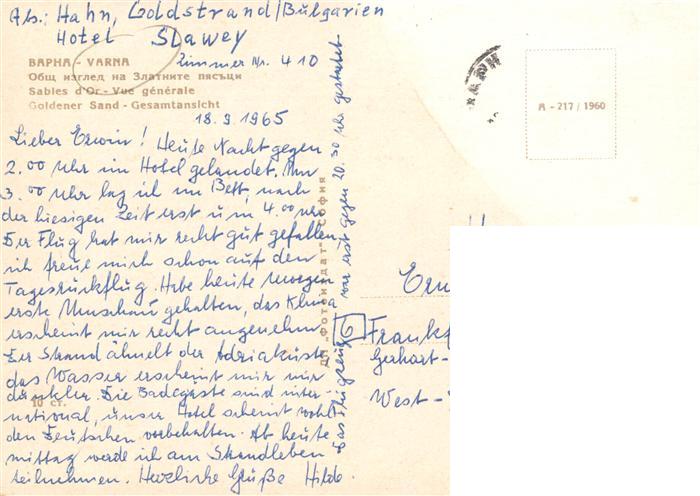 Ab.: Hahn, Goldstrand/Bulgarien
Hotel Slawey
Zimmer Nr. 410
ВАРНА - VARNA
Общ изглед на Златните пясъци
Sables d'Or - Vue générale
Goldener Sand - Gesamtansicht
18.9.1965
Lieber Erwin! Heute Nacht gegen
2.00 Uhr im Hotel gelandet. Um
3.00 Uhr lag ich im Bett, nach
der hiesigen Zeit erst um 4.00 Uhr
Der Flug hat mir recht gut gefallen,
ich freue mich schon auf den
Tagesrückflug. Habe heute Morgen
erste Umschau gehalten, das Klima
erscheint mir recht angenehm
Der Strand ähnelt der Adriaküste
das Wasser erscheint mir nur
dunkler. Die Badegäste sind inter-
national, unser Hotel scheint wohl
den Deutschen vorbehalten. Ab heute
mittag werde ich am Strandleben
teilnehmen. Herzliche Grüße Hilde.
10 ст.
Das Flugzeug war erst gegen 20.30 Uhr gestartet
ДП „Фотоиздат" София
А - 217 / 1960
Frankf
Gerhart-
West-